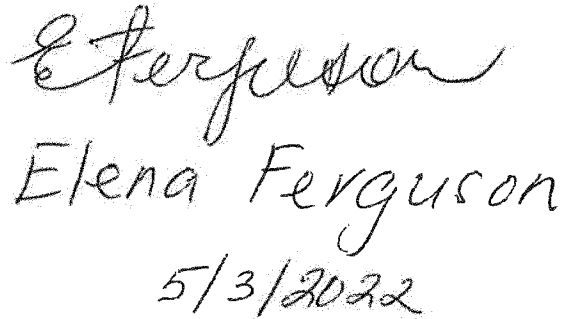 E Ferguson
Elena Ferguson
5/3/2022